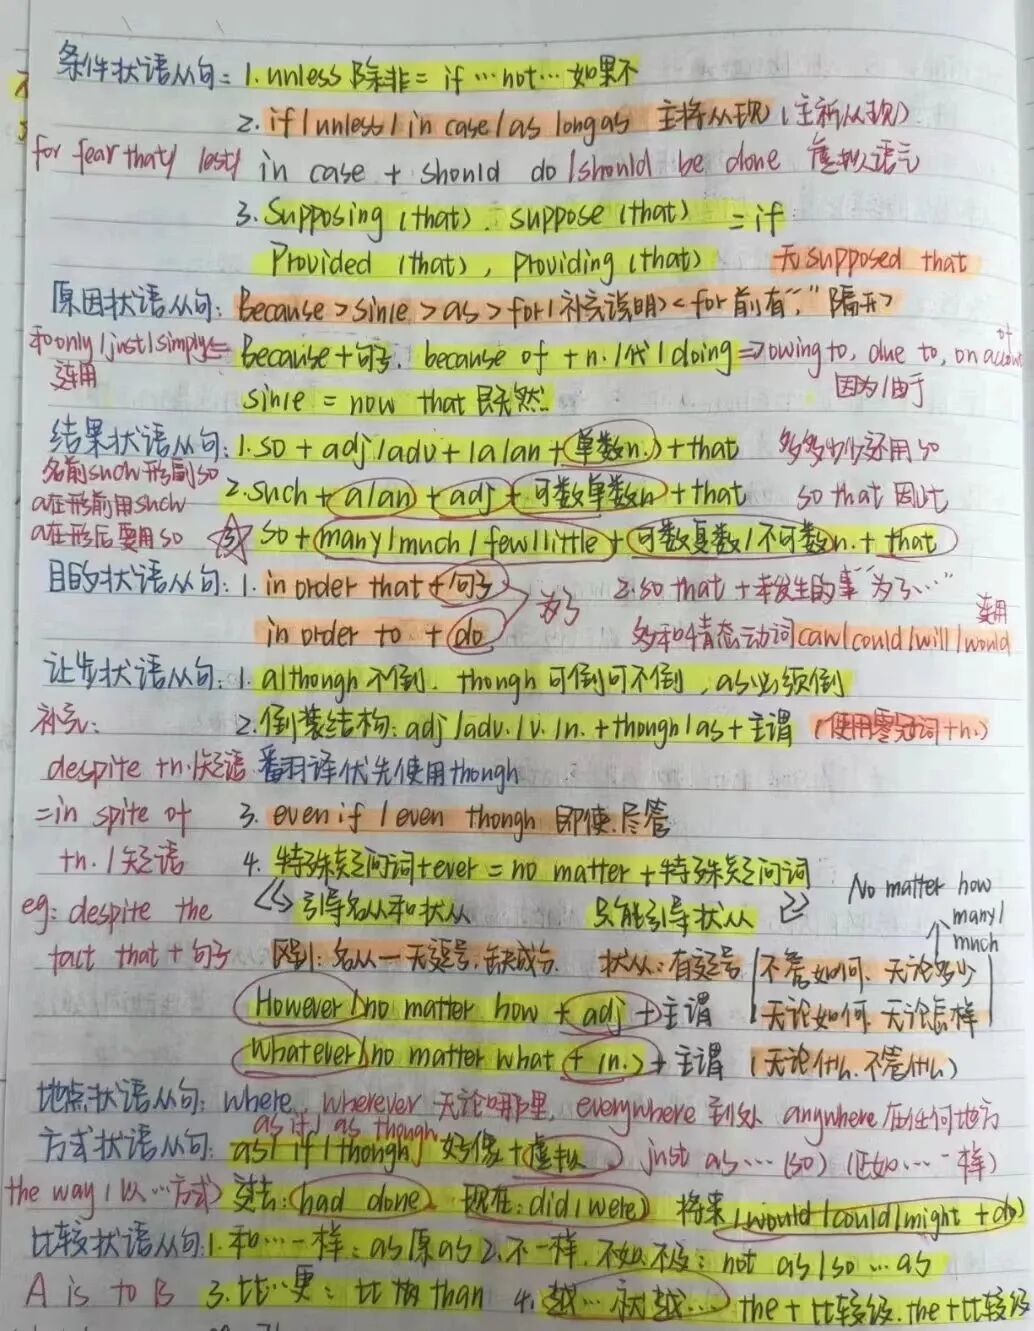 条件状语从句: 1. unless 除非 = if … not … 如果不
2. if / unless / in case / as long as 主将从现 (主祈从现)
for fear that / lest / in case + should do / should be done 虚拟语气
3. Supposing (that). suppose (that) = if
Provided (that), providing (that) 无 supposed that
原因状语从句: Because > since > as > for (补充说明) < for 前有“,”隔开 >
和only / just / simply 连用 Because + 句子. because of + n. / 代 / doing => owing to, due to, on account of 因为 / 由于
since = now that 既然.
结果状语从句: 1. so + adj / adv + (a / an + 单数n.) + that 多多少少还用so
名前such形副so
2. such + a / an + adj + 可数单数n + that so that 因此
a在形前用such
a在形后要用so ③ so + many / much / few / little + 可数复数 / 不可数n. + that
目的状语从句: 1. in order that + 句子 为了 2. so that + 未发生的事 “为了…”
in order to + do 多和情态动词can / could / will / would 连用
让步状语从句: 1. although 不倒. though 可倒可不倒, as必须倒
补充: 2. 倒装结构: adj / adv. / v. / n. + though / as + 主谓 (使用零冠词+n.)
despite + n. / 短语 翻译优先使用though
= in spite of 3. even if / even though 即使. 尽管
+ n. / 短语 4. 特殊疑问词 + ever = no matter + 特殊疑问词
引导名从和状从 只能引导状从 No matter how many / much
eg: despite the fact that + 句子 区别: 名从 — 无逗号, 缺成分. 状从: 有逗号 不管如何. 无论多少
However / no matter how + adj + 主谓 无论如何. 无论怎样
Whatever / no matter what + (n.) + 主谓 (无论什么. 不管什么)
地点状语从句: where, wherever 无论哪里, everywhere 到处 anywhere 在任何地方
as if / as though
方式状语从句: as / if / though 好像 + 虚拟 just as … (so) (正如 … 一样)
the way (以…方式) 过去: (had done) 现在: did / were) 将来 (would / could / might + do)
比较状语从句: 1. 和…一样: as 原 as 2. 不一样. 不如. 不及: not as / so … as
A is to B 3. 比…更: 比较 than 4. 越…就越… the + 比较级. the + 比较级